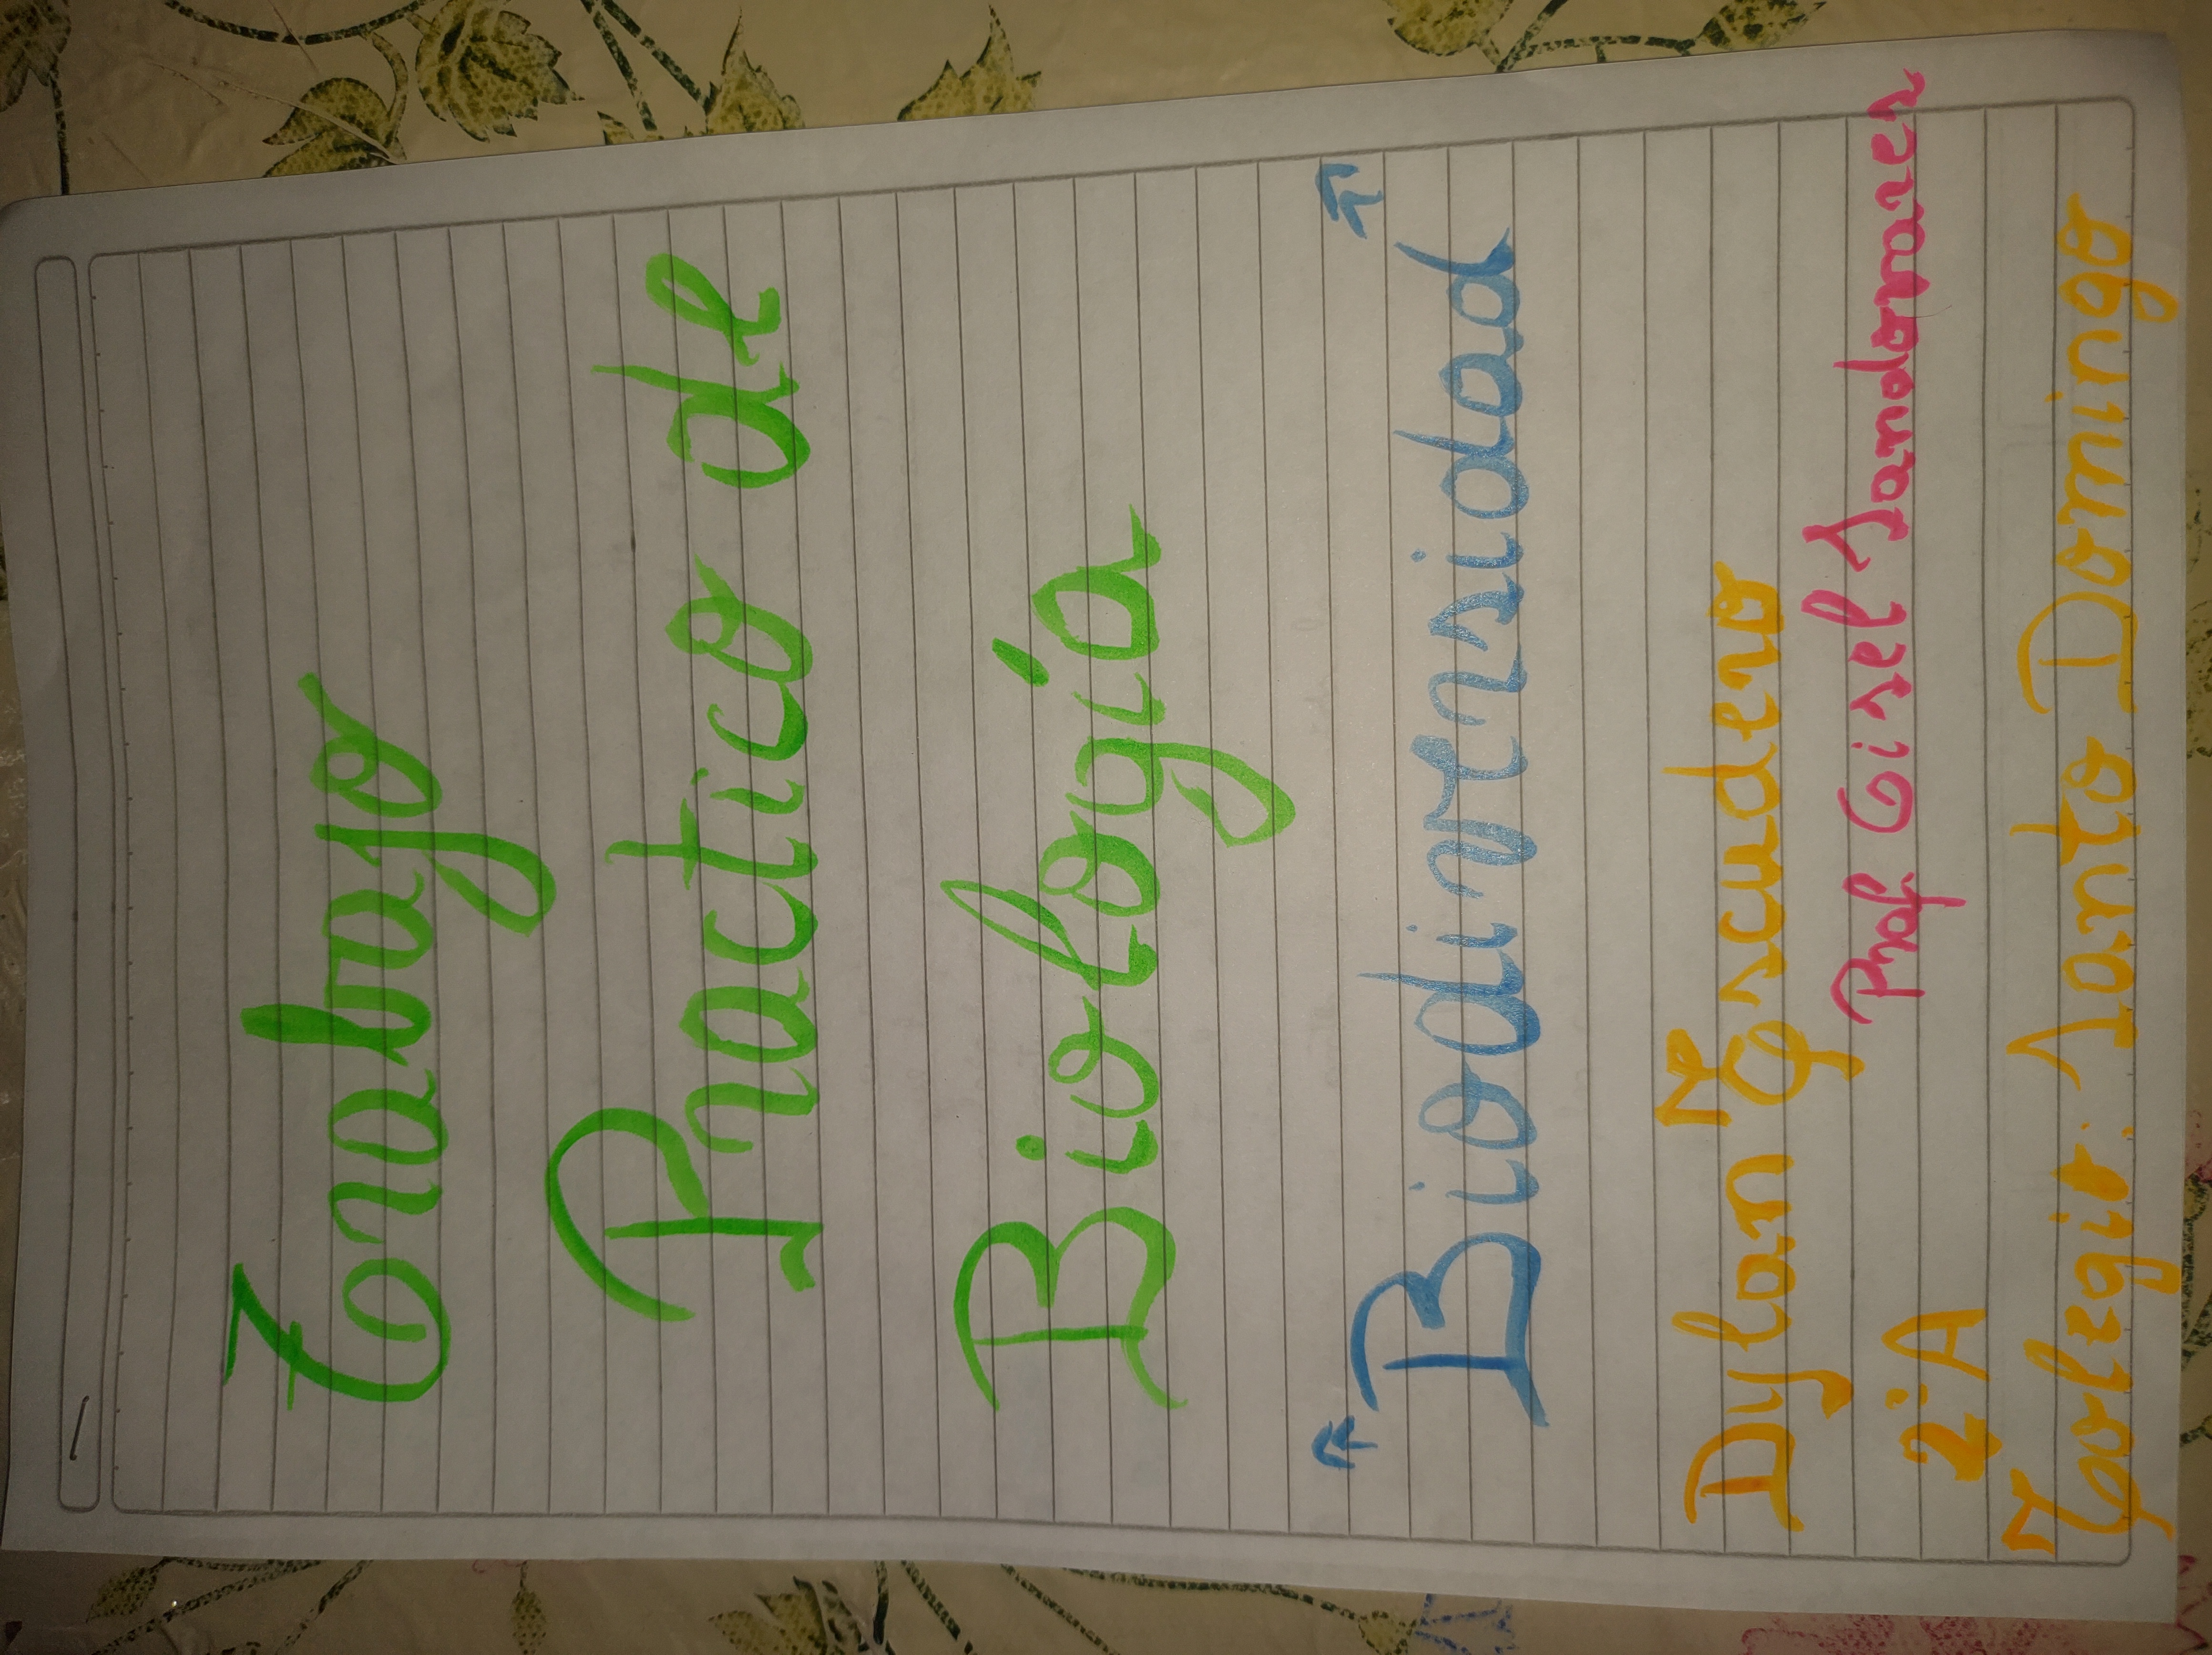 Trabajo
Practico de
Biología
"Biodiversidad"
Dylan Escudero
Prof. Gisel Sandomares
2°A
Colegio: Santo Domingo